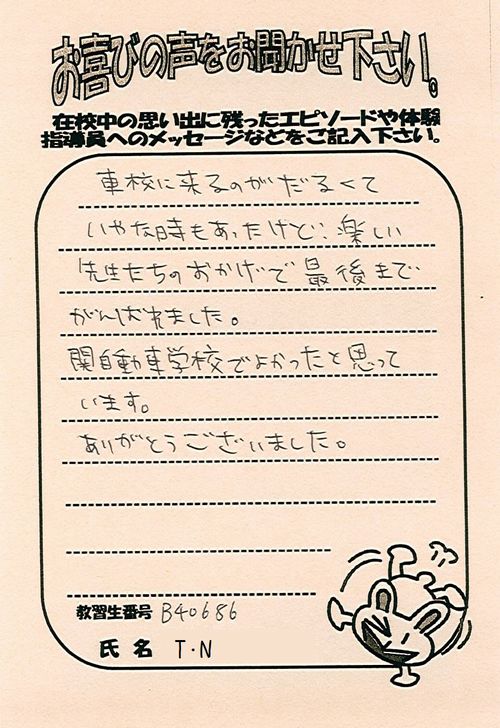 お喜びの声をお聞かせ下さい。
在校中の思い出に残ったエピソードや体験
指導員へのメッセージなどをご記入下さい。
車校に来るのがだるくて
いやな時もあったけど、楽しい
先生たちのおかげで最後まで
がんばれました。
関自動車学校でよかったと思って
います。
ありがとうございました。
教習生番号 B40686
氏名 T・N